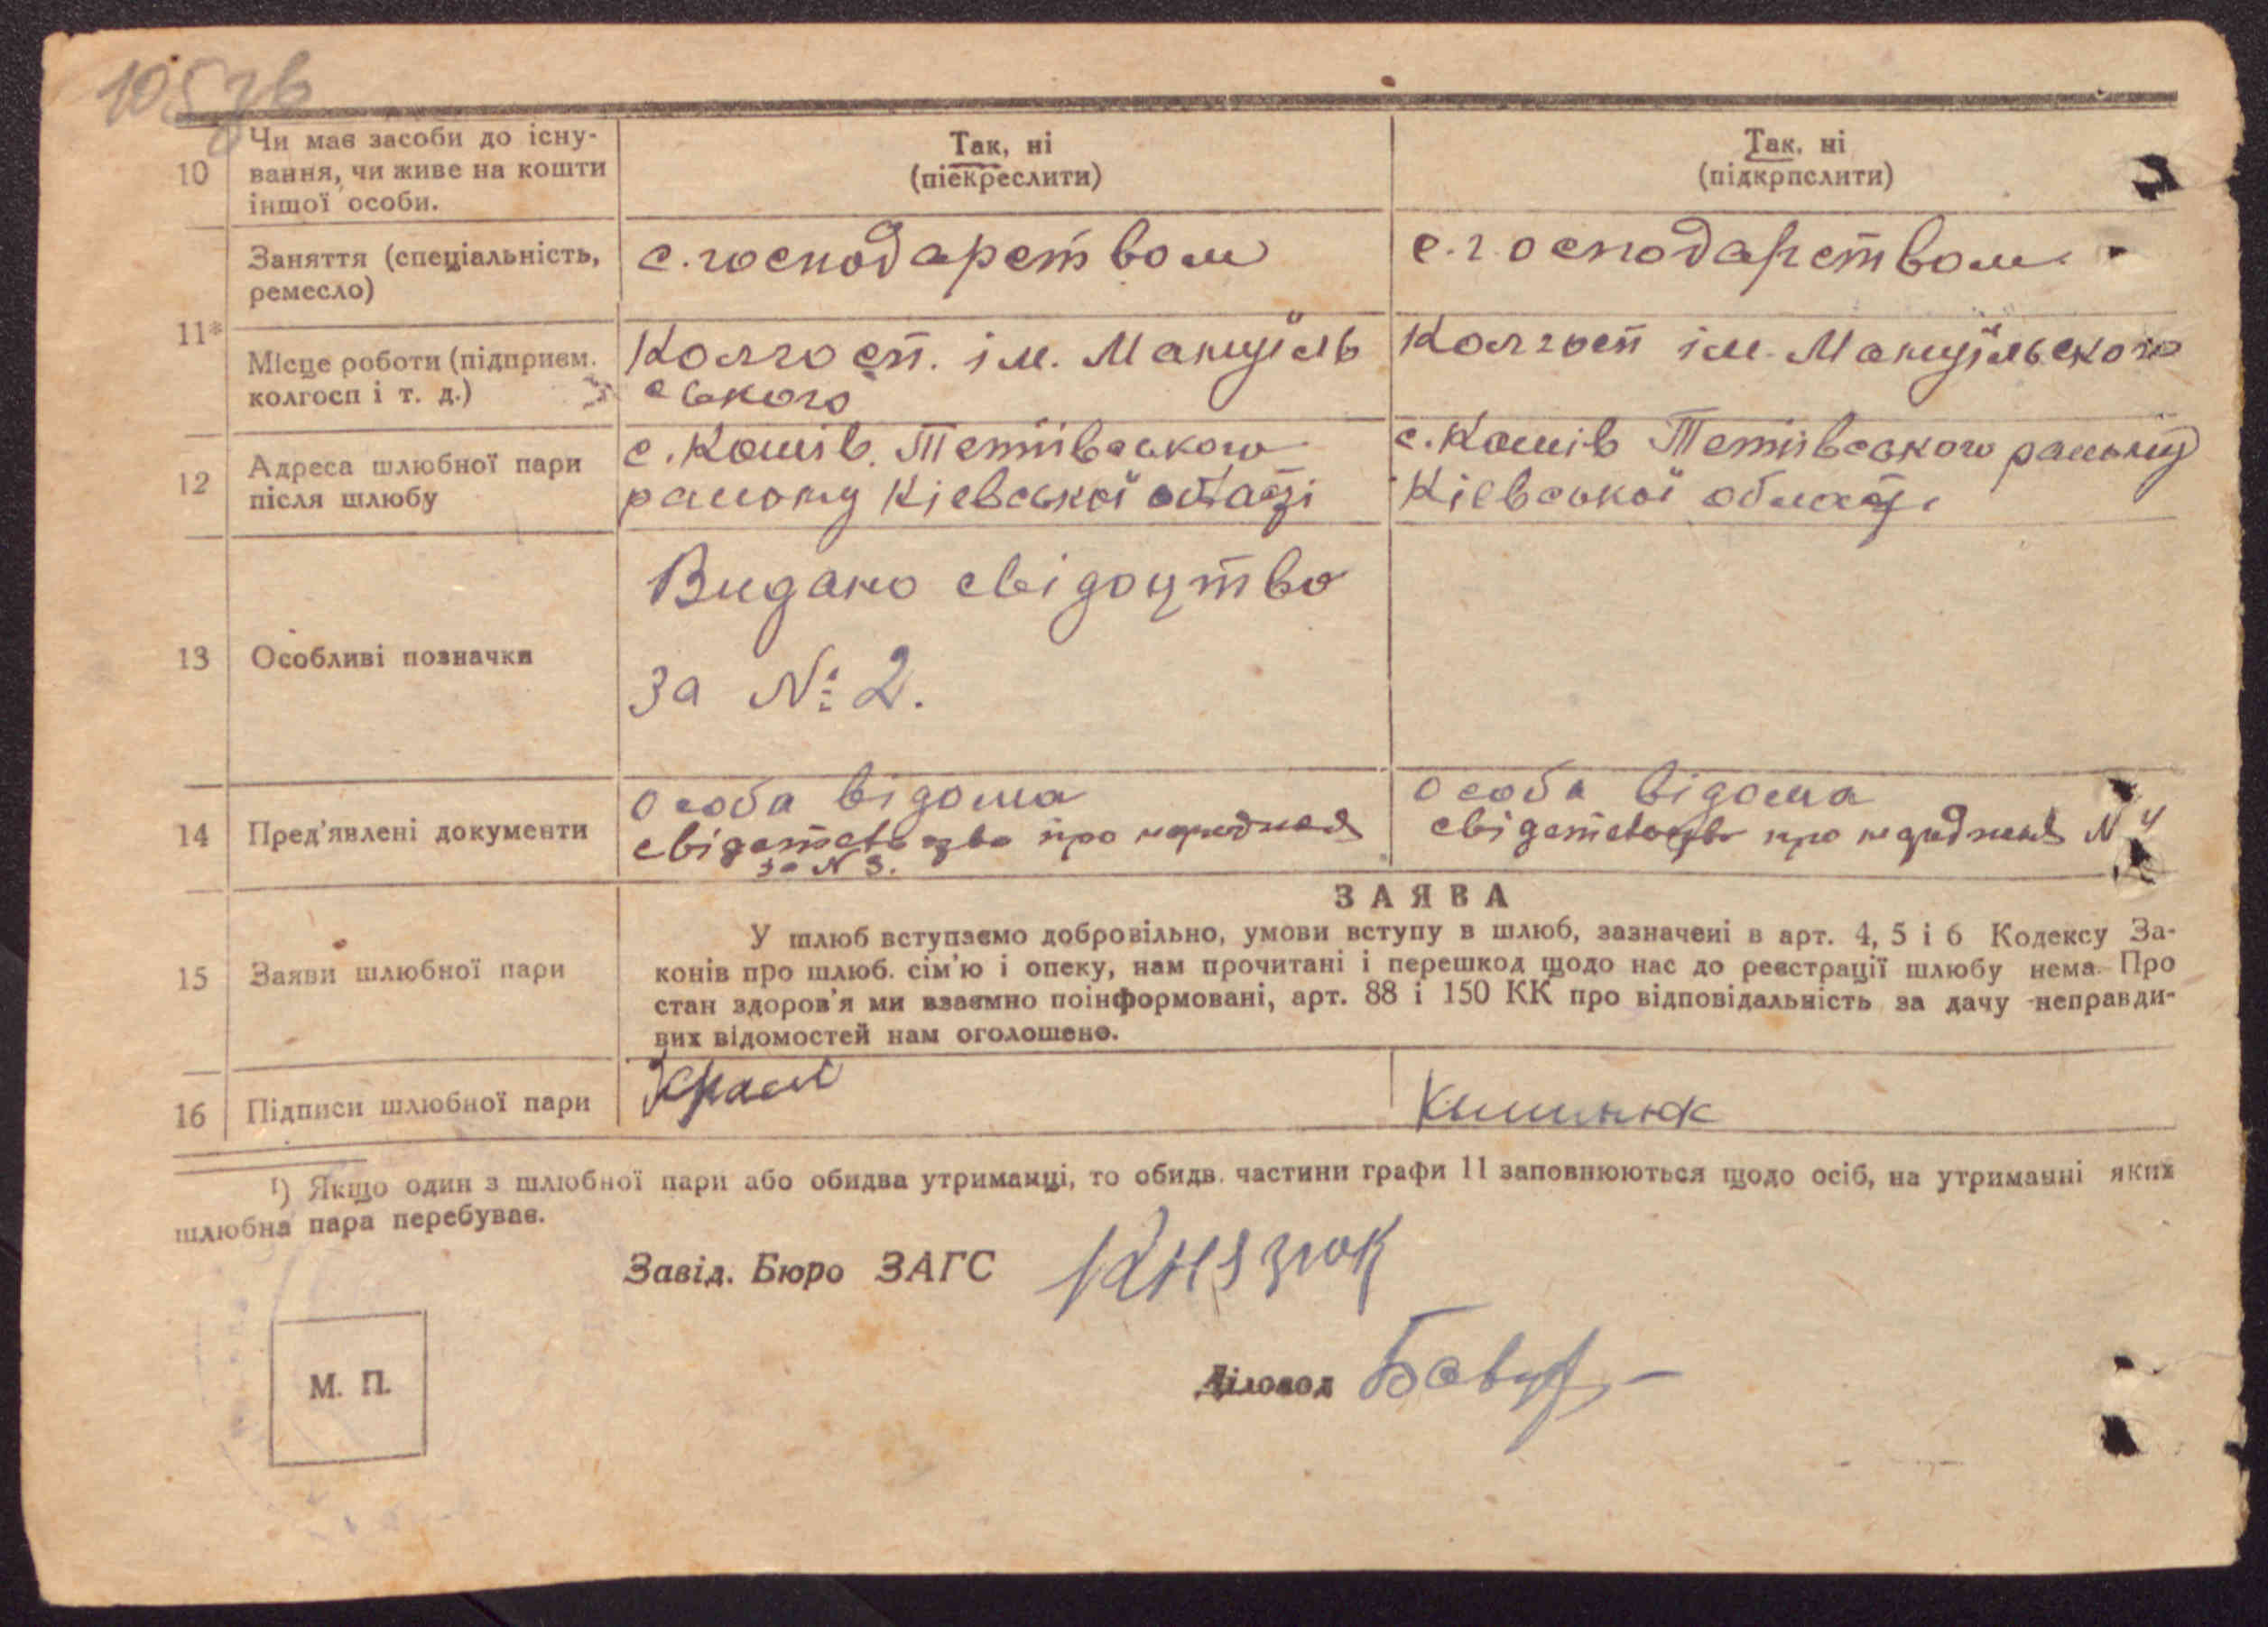 105зв
10 Чи має засоби до існу-
вання, чи живе на кошти
іншої особи.
Так, ні
(піекреслити)
Так, ні
(підкрпслити)
11*
Заняття (спеціальність,
ремесло)
с. господарством
с. господарством
Місце роботи (підприєм.
колгосп і т. д.)
Колгосп. ім. Мануїль
ського
Колгосп ім. Мануїльського
12 Адреса шлюбної пари
після шлюбу
с. Кошів. Тетіївського
району Кіевської області
с. Кошів Тетіївського району
Кіевської області
13 Особливі позначки
Видано свідоцтво
за №2.
14 Пред'явлені документи
особа відома
про
за N 3.
особа відома
про N 4
15 Заяви шлюбної пари
ЗАЯВА
У шлюб вступаємо добровільно, умови вступу в шлюб, зазначені в арт. 4, 5 і 6 Кодексу За-
конів про шлюб. сім'ю і опеку, нам прочитані і перешкод щодо нас до реєстрації шлюбу нема. Про
стан здоров'я ми взаємно поінформовані, арт. 88 і 150 КК про відповідальність за дачу неправди-
вих відомостей нам оголошено.
16 Підписи шлюбної пари
¹) Якщо один з шлюбної пари або обидва утриманці, то обидв. частини графи 11 заповнюються щодо осіб, на утриманні яких
шлюбна пара перебуває.
Завід. Бюро ЗАГС Князюк
Діловод
М. П.